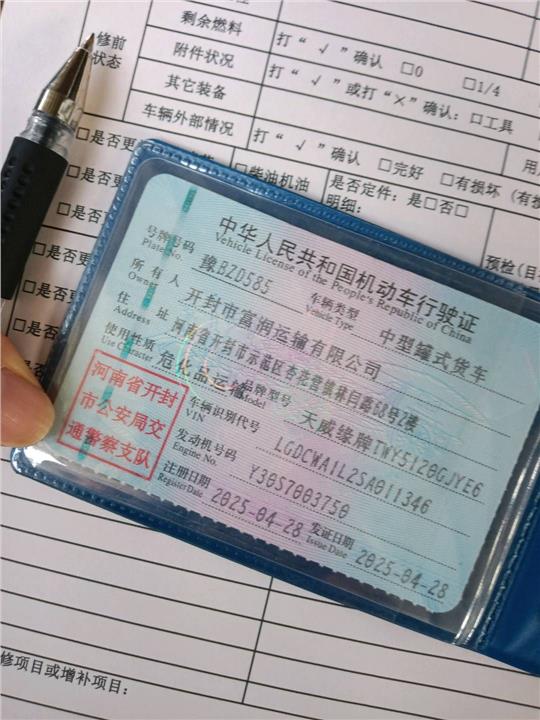 剩余燃料 打“√”确认 □0 □1/4
修前
状态
附件状况 打“√”或打“×”确认：□工具
其它装备
车辆外部情况 打“√”确认 □完好 □有损坏
□是否更
□柴油机油 是否定件：是□否□
明细：
□是否更
□是否更
□是否
□是否
□是否
预检
中华人民共和国机动车行驶证
Vehicle License of the People's Republic of China
号牌号码 豫BZD585 车辆类型 中型罐式货车
Plate No. Vehicle Type
所有人 开封市富润运输有限公司
Owner
住址 河南省开封市示范区杏花营镇林目路68号2楼
Address
使用性质 危化品运输 品牌型号 天威缘牌TWY5120GJYE6
Use Character Model
河南省开封
市公安局交
通警察支队
车辆识别代号 LGDCWA1L2SA011346
VIN
发动机号码 Y30S7003750
Engine No.
注册日期 2025-04-28 发证日期 2025-04-28
Register Date Issue Date
修项目或增补项目：